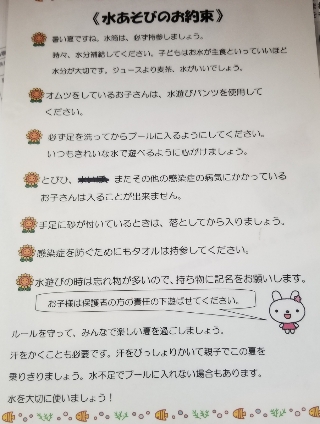 《水あそびのお約束》
暑い夏ですね、水筒は、必ず持参しましょう。
時々、水分補給してください。子どもはお水が主食といっていいほど
水分が大切です。ジュースより麦茶、水がいいでしょう。
オムツをしているお子さんは、水遊びパンツを使用して
ください。
必ず足を洗ってからプールに入るようにしてください。
いつもきれいな水で遊べるように心がけましょう。
とびひ、 またその他の感染症の病気にかかっている
お子さんは入ることが出来ません。
手足に砂が付いているときは、落としてから入りましょう。
感染症を防ぐためにもタオルは持参してください。
水遊びの時は忘れ物が多いので、持ち物に記名をお願いします。
お子様は保護者の方の責任の下遊ばせてください。
ルールを守って、みんなで楽しい夏を過ごしましょう。
汗をかくことも必要です。汗をびっしょりかいて親子でこの夏を
乗りきりましょう。水不足でプールに入れない場合もあります。
水を大切に使いましょう！